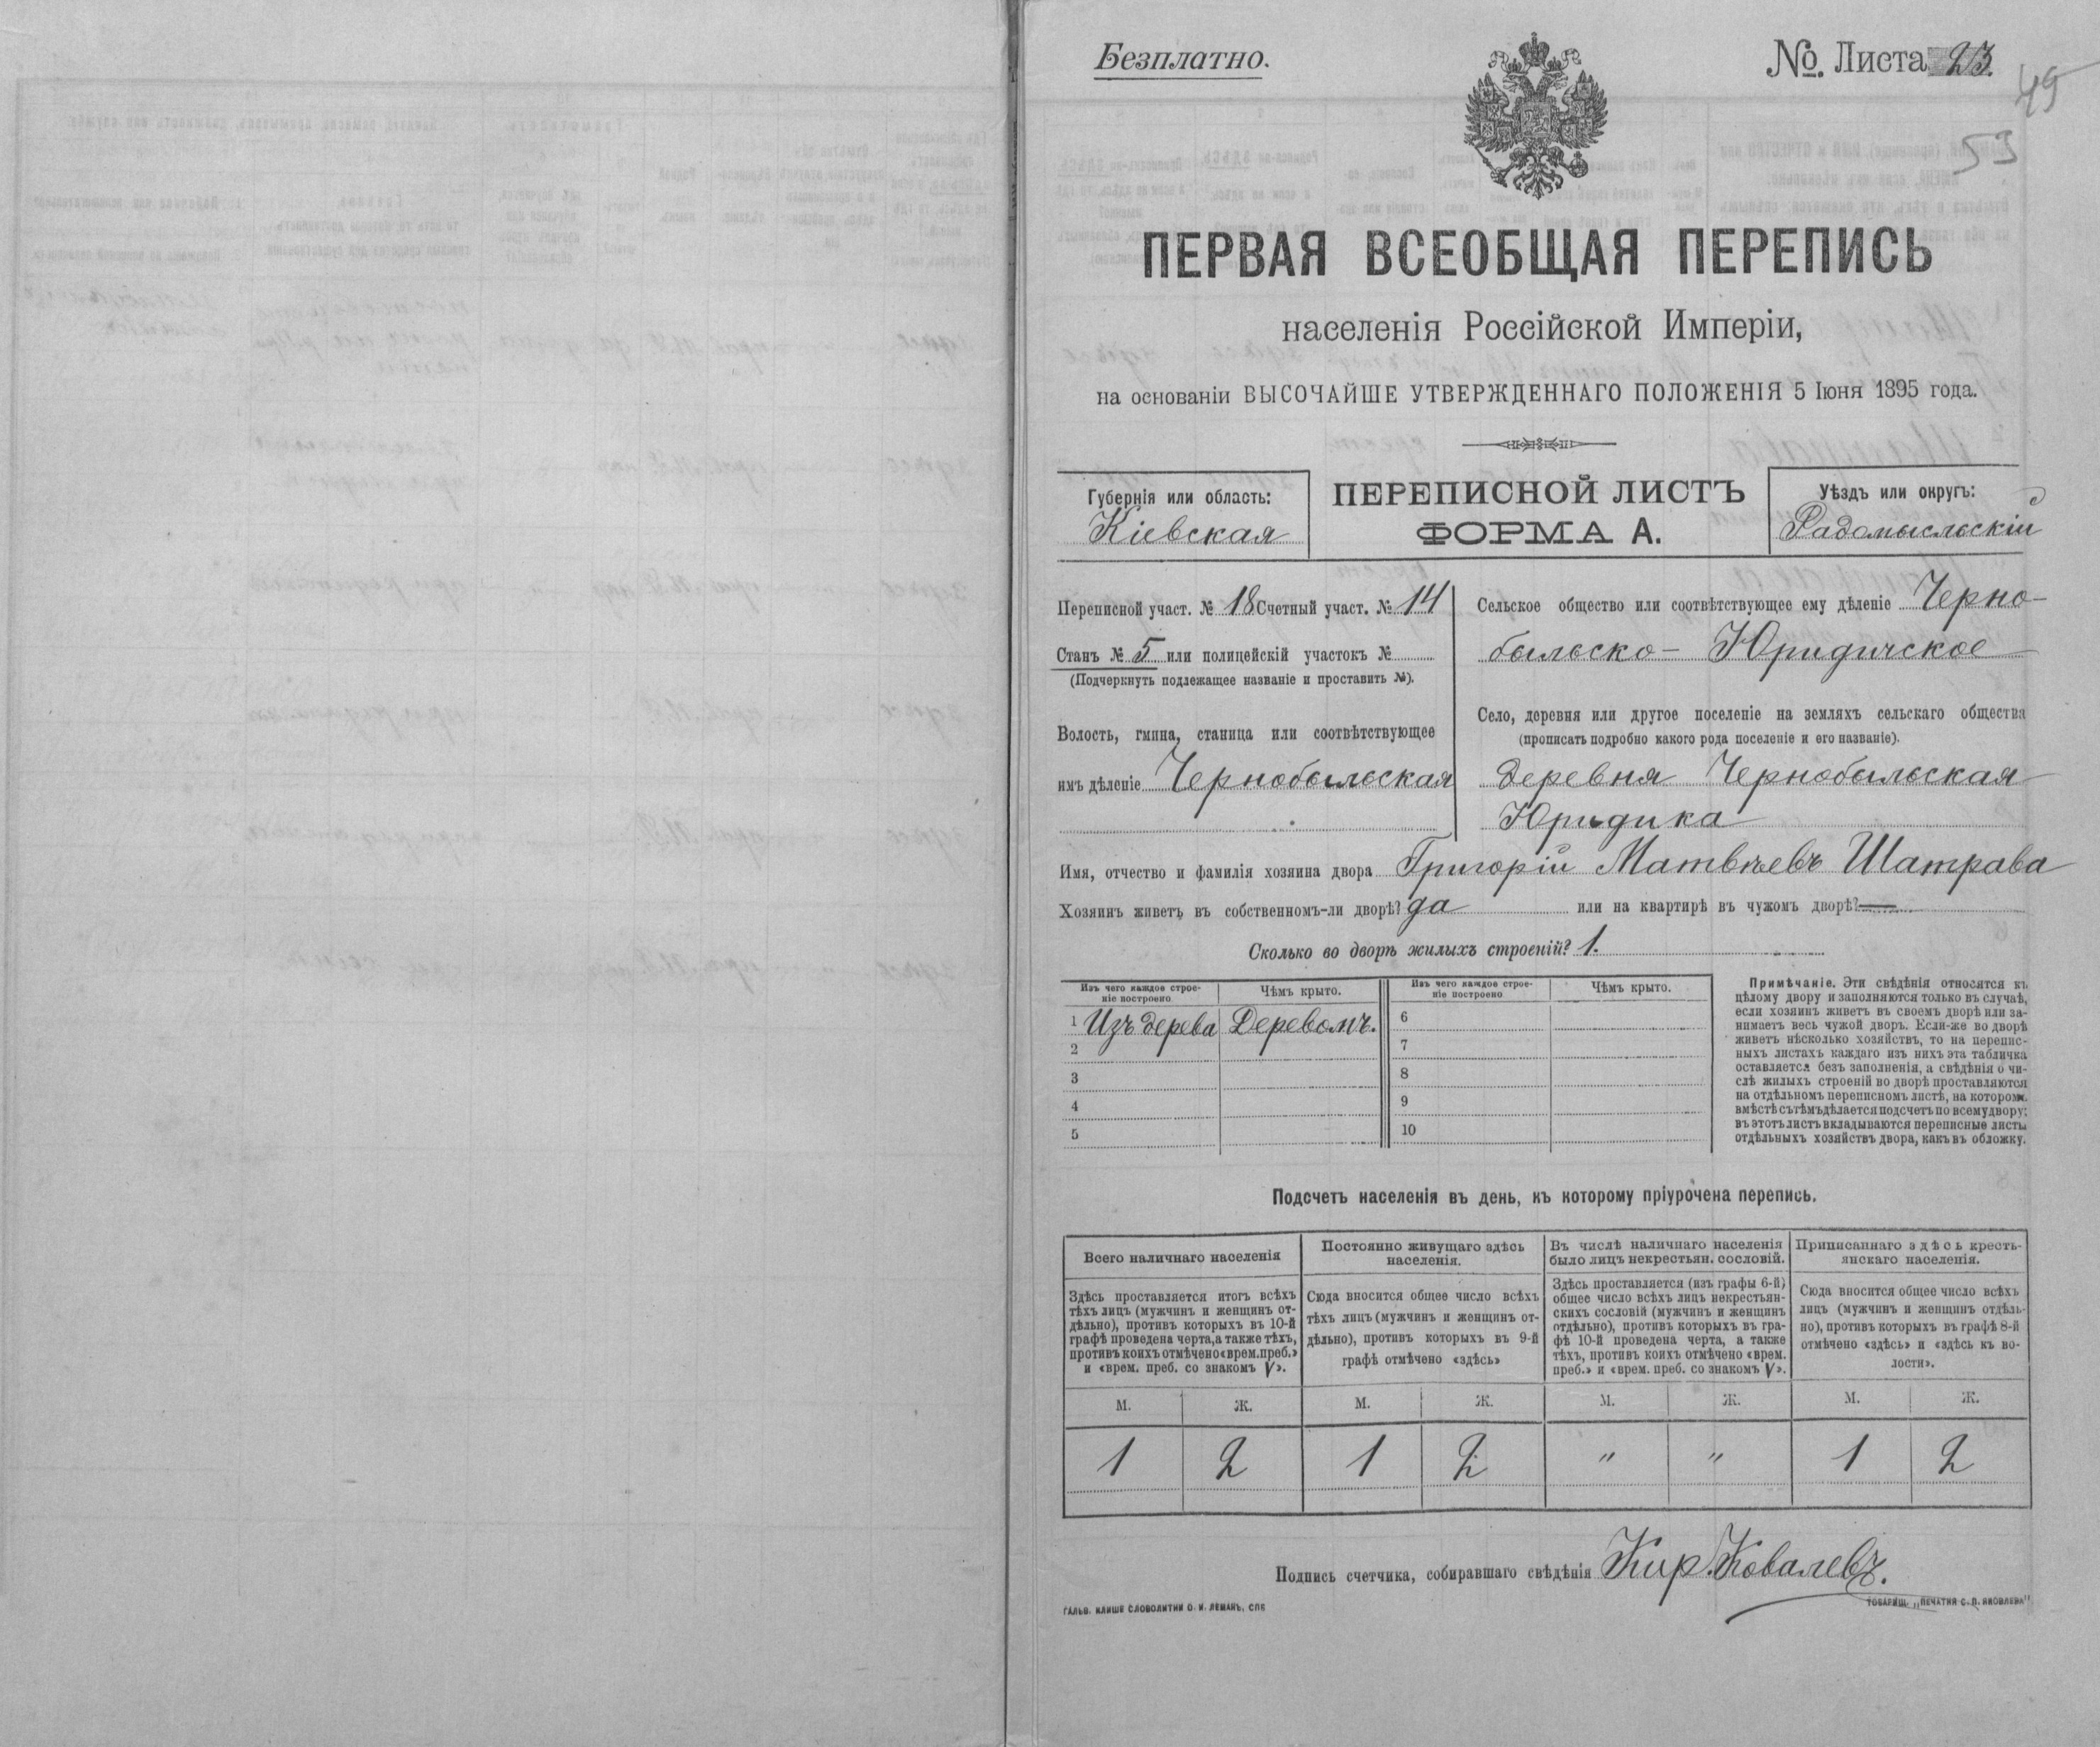 Безплатно.
№ Листа 23.
49
53
ПЕРВАЯ ВСЕОБЩАЯ ПЕРЕПИСЬ
населенія Россійской Имперіи,
на основаніи ВЫСОЧАЙШЕ УТВЕРЖДЕННАГО ПОЛОЖЕНІЯ 5 Іюня 1895 года.
Губернія или область:
Кіевская
ПЕРЕПИСНОЙ ЛИСТЪ
ФОРМА А.
Уѣздъ или округъ:
Радомысльскій
Переписной участ. № 18 Счетный участ. № 14
Станъ № 5 или полицейскій участокъ №
(Подчеркнуть подлежащее названіе и проставить №).
Волость, гмина, станица или соотвѣтствующее
имъ дѣленіе Чернобыльская
Сельское общество или соотвѣтствующее ему дѣленіе Черно-
быльско- Юридичское
Село, деревня или другое поселеніе на земляхъ сельскаго общества
(прописать подробно какого рода поселеніе и его названіе).
деревня Чернобыльская
Юридика
Имя, отчество и фамилія хозяина двора Григорій Матвѣевъ Шатрава
Хозяинъ живетъ въ собственномъ-ли дворѣ? да или на квартирѣ въ чужомъ дворѣ? —
Сколько во дворѣ жилыхъ строеній? 1.
Изъ чего каждое строе-
ніе построено
Чѣмъ крыто.
Изъ чего каждое строе-
ніе построено
Чѣмъ крыто.
1 Изъ дерева Деревомъ. 6
2 7
3 8
4 9
5 10
Примѣчаніе. Эти свѣдѣнія относятся къ
цѣлому двору и заполняются только въ случаѣ,
если хозяинъ живетъ въ своемъ дворѣ или за-
нимаетъ весь чужой дворъ. Если-же во дворѣ
живетъ нѣсколько хозяйствъ, то на перепис-
ныхъ листахъ каждаго изъ нихъ эта табличка
оставляется безъ заполненія, а свѣдѣнія о чи-
слѣ жилыхъ строеній во дворѣ проставляются
на отдѣльномъ переписномъ листѣ, на которомъ
вмѣстѣ съ тѣмъ дѣлается подсчетъ по всему двору:
въ этотъ листъ вкладываются переписные листы
отдѣльныхъ хозяйствъ двора, какъ въ обложку.
Подсчетъ населенія въ день, къ которому пріурочена перепись.
Всего наличнаго населенія
Здѣсь проставляется итогъ всѣхъ
тѣхъ лицъ (мужчинъ и женщинъ от-
дѣльно), противъ которыхъ въ 10-й
графѣ проведена черта, а также тѣхъ,
противъ коихъ отмѣчено «врем. преб.»
и «врем. преб. со знакомъ V».
Постоянно живущаго здѣсь
населенія.
Сюда вносится общее число всѣхъ
тѣхъ лицъ (мужчинъ и женщинъ от-
дѣльно), противъ которыхъ въ 9-й
графѣ отмѣчено «здѣсь»
Въ числѣ наличнаго населенія
было лицъ некрестьян. сословій.
Здѣсь проставляется (изъ графы 6-й)
общее число всѣхъ лицъ некрестьян-
скихъ сословій (мужчинъ и женщинъ
отдѣльно), противъ которыхъ въ гра-
фѣ 10-й проведена черта, а также
тѣхъ, противъ коихъ отмѣчено «врем.
преб.» и «врем. преб. со знакомъ V».
Приписаннаго здѣсь кресть-
янскаго населенія.
Сюда вносится общее число всѣхъ
лицъ (мужчинъ и женщинъ отдѣль-
но), противъ которыхъ въ графѣ 8-й
отмѣчено «здѣсь» и «здѣсь къ во-
лости».
М. Ж. М. Ж. М. Ж. М. Ж.
1 2 1 2 " " 1 2
Подпись счетчика, собиравшаго свѣдѣнія Кир. Ковалевъ.
ГАЛЬВ. КЛИШЕ СЛОВОЛИТНИ О. И. ЛЕМАНЪ, СПБ
ТОВАРИЩ. „ПЕЧАТНЯ С. П. ЯКОВЛЕВА"